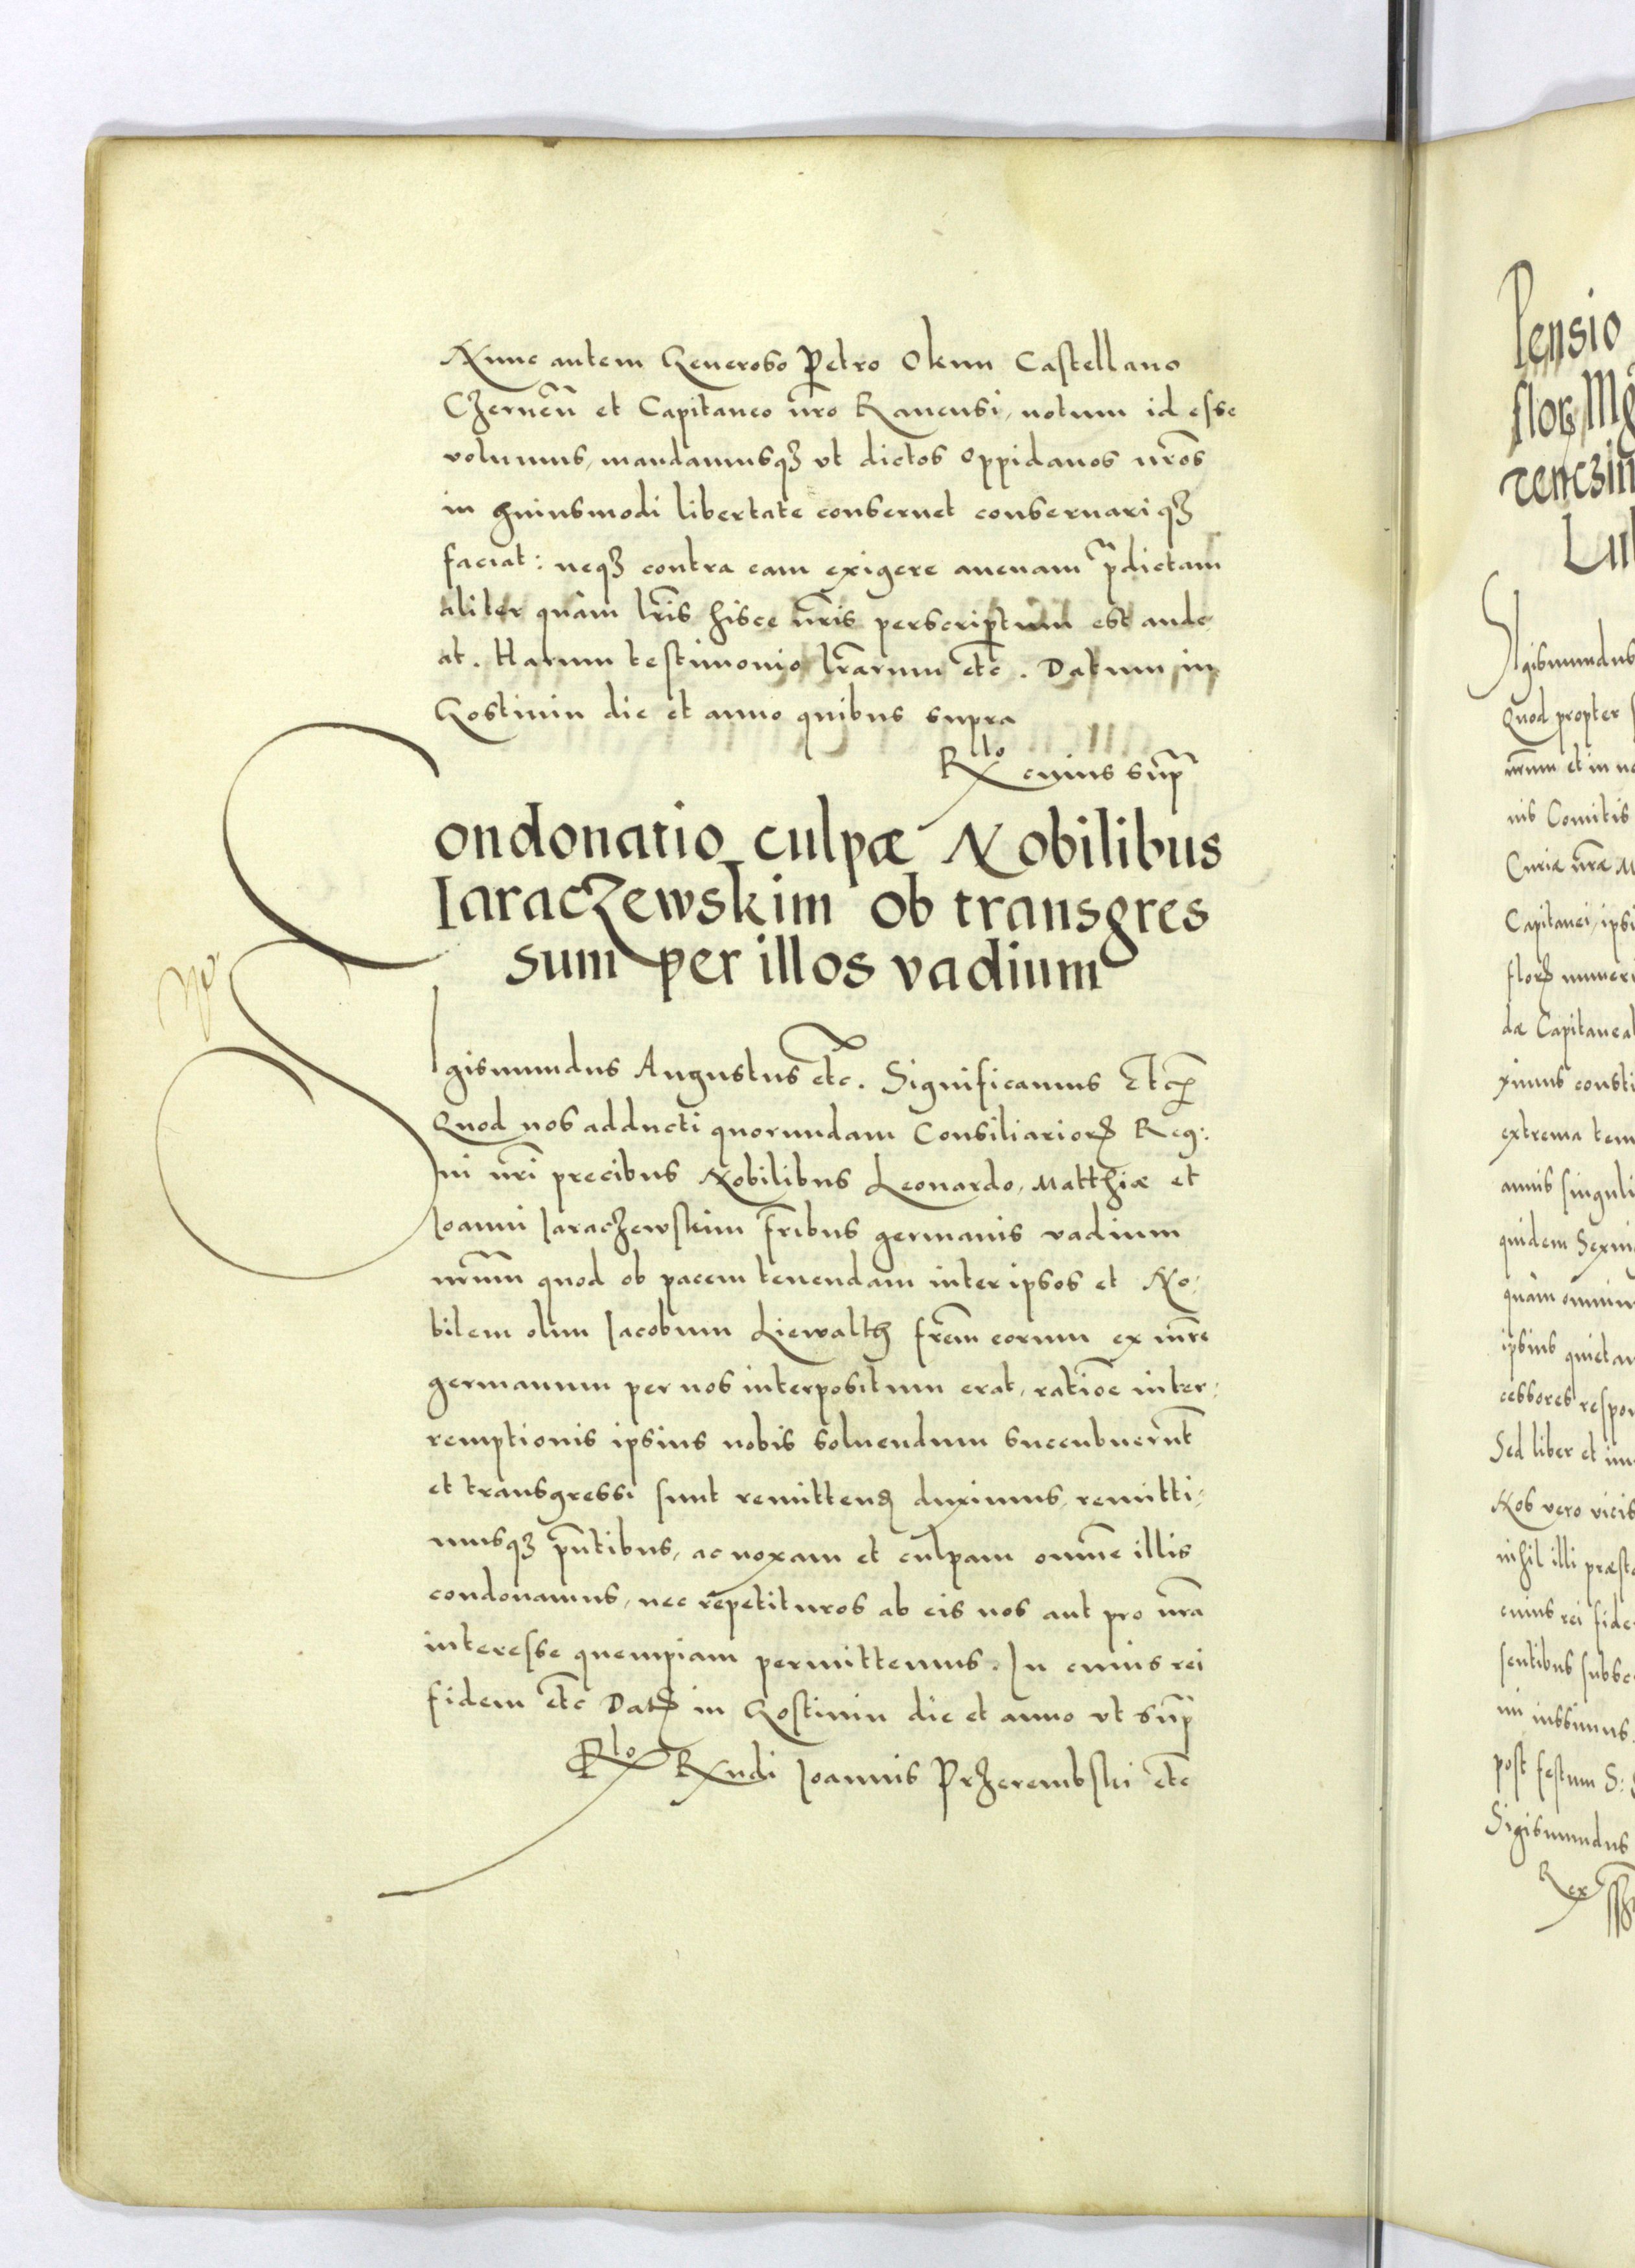 Nunc autem Generoso Petro Okun Castellano
Czernen̄ et Capitaneo nr̄o Ranensi, notum id esse
volumus, mandamusqꝫ vt dictos oppidanos nr̄os
in huiusmodi libertate conseruet conseruariqꝫ
faciat: neqꝫ contra eam exigere auenam p̄dictam
aliter quàm lr̄is hisce nr̄is perscriptum est aude
at. Harum testimonio lr̄arum etc̄. Datum in
Gostinin die et anno quibus supra
Rlo cuius sup̄
Condonatio culpæ Nobilibus
Iaraczewskim ob transgres
sum per illos vadium
No
Sigismundus Augustus etc̄. Significamus Etcꝫ
Quod nos adducti quorundam Consiliarioꝝ Reg:
ni nr̄i precibus Nobilibus Leonardo, Matthiæ et
Ioanni Iaraczewskim fr̄ibus germanis vadium
nr̄um quod ob pacem tenendam inter ipsos et No:
bilem olim Iacobum Liewalth fr̄em eorum ex mr̄e
germanum per nos interpositum erat, ratioē inter:
remptionis ipsius nobis soluendum succubuerūt
et transgressi sunt remittenꝺ duximus, remitti:
musqꝫ pn̄tibus, ac noxam et culpam omnē illis
condonamus, nec repetituros ab eis nos aut pro nr̄a
interesse quempiam permittemus. In cuius rei
fidem etc̄ Datꝭ in Gostinin die et anno vt sup̄
Rlo Rn̄di Ioannis Przerembski etc̄
Pensio
flor, Mg
tenczin
Lu
Sigismundus
Quod propter
nr̄um et in no
nis Comitis
Curiæ nr̄æ M
Capitanei, ipsi
floꝝ numeri
dæ Capitaneat
ximus consti
extrema tem
annis singuli
quidem Sexin
quàm omnium
ipsius quietan
cessores respon
Sed liber et im
Nos vero vicis
nihil illi præsta
cuius rei fide
sentibus subsc
ni iussimus.
post festum S:
Sigismundus
Rex